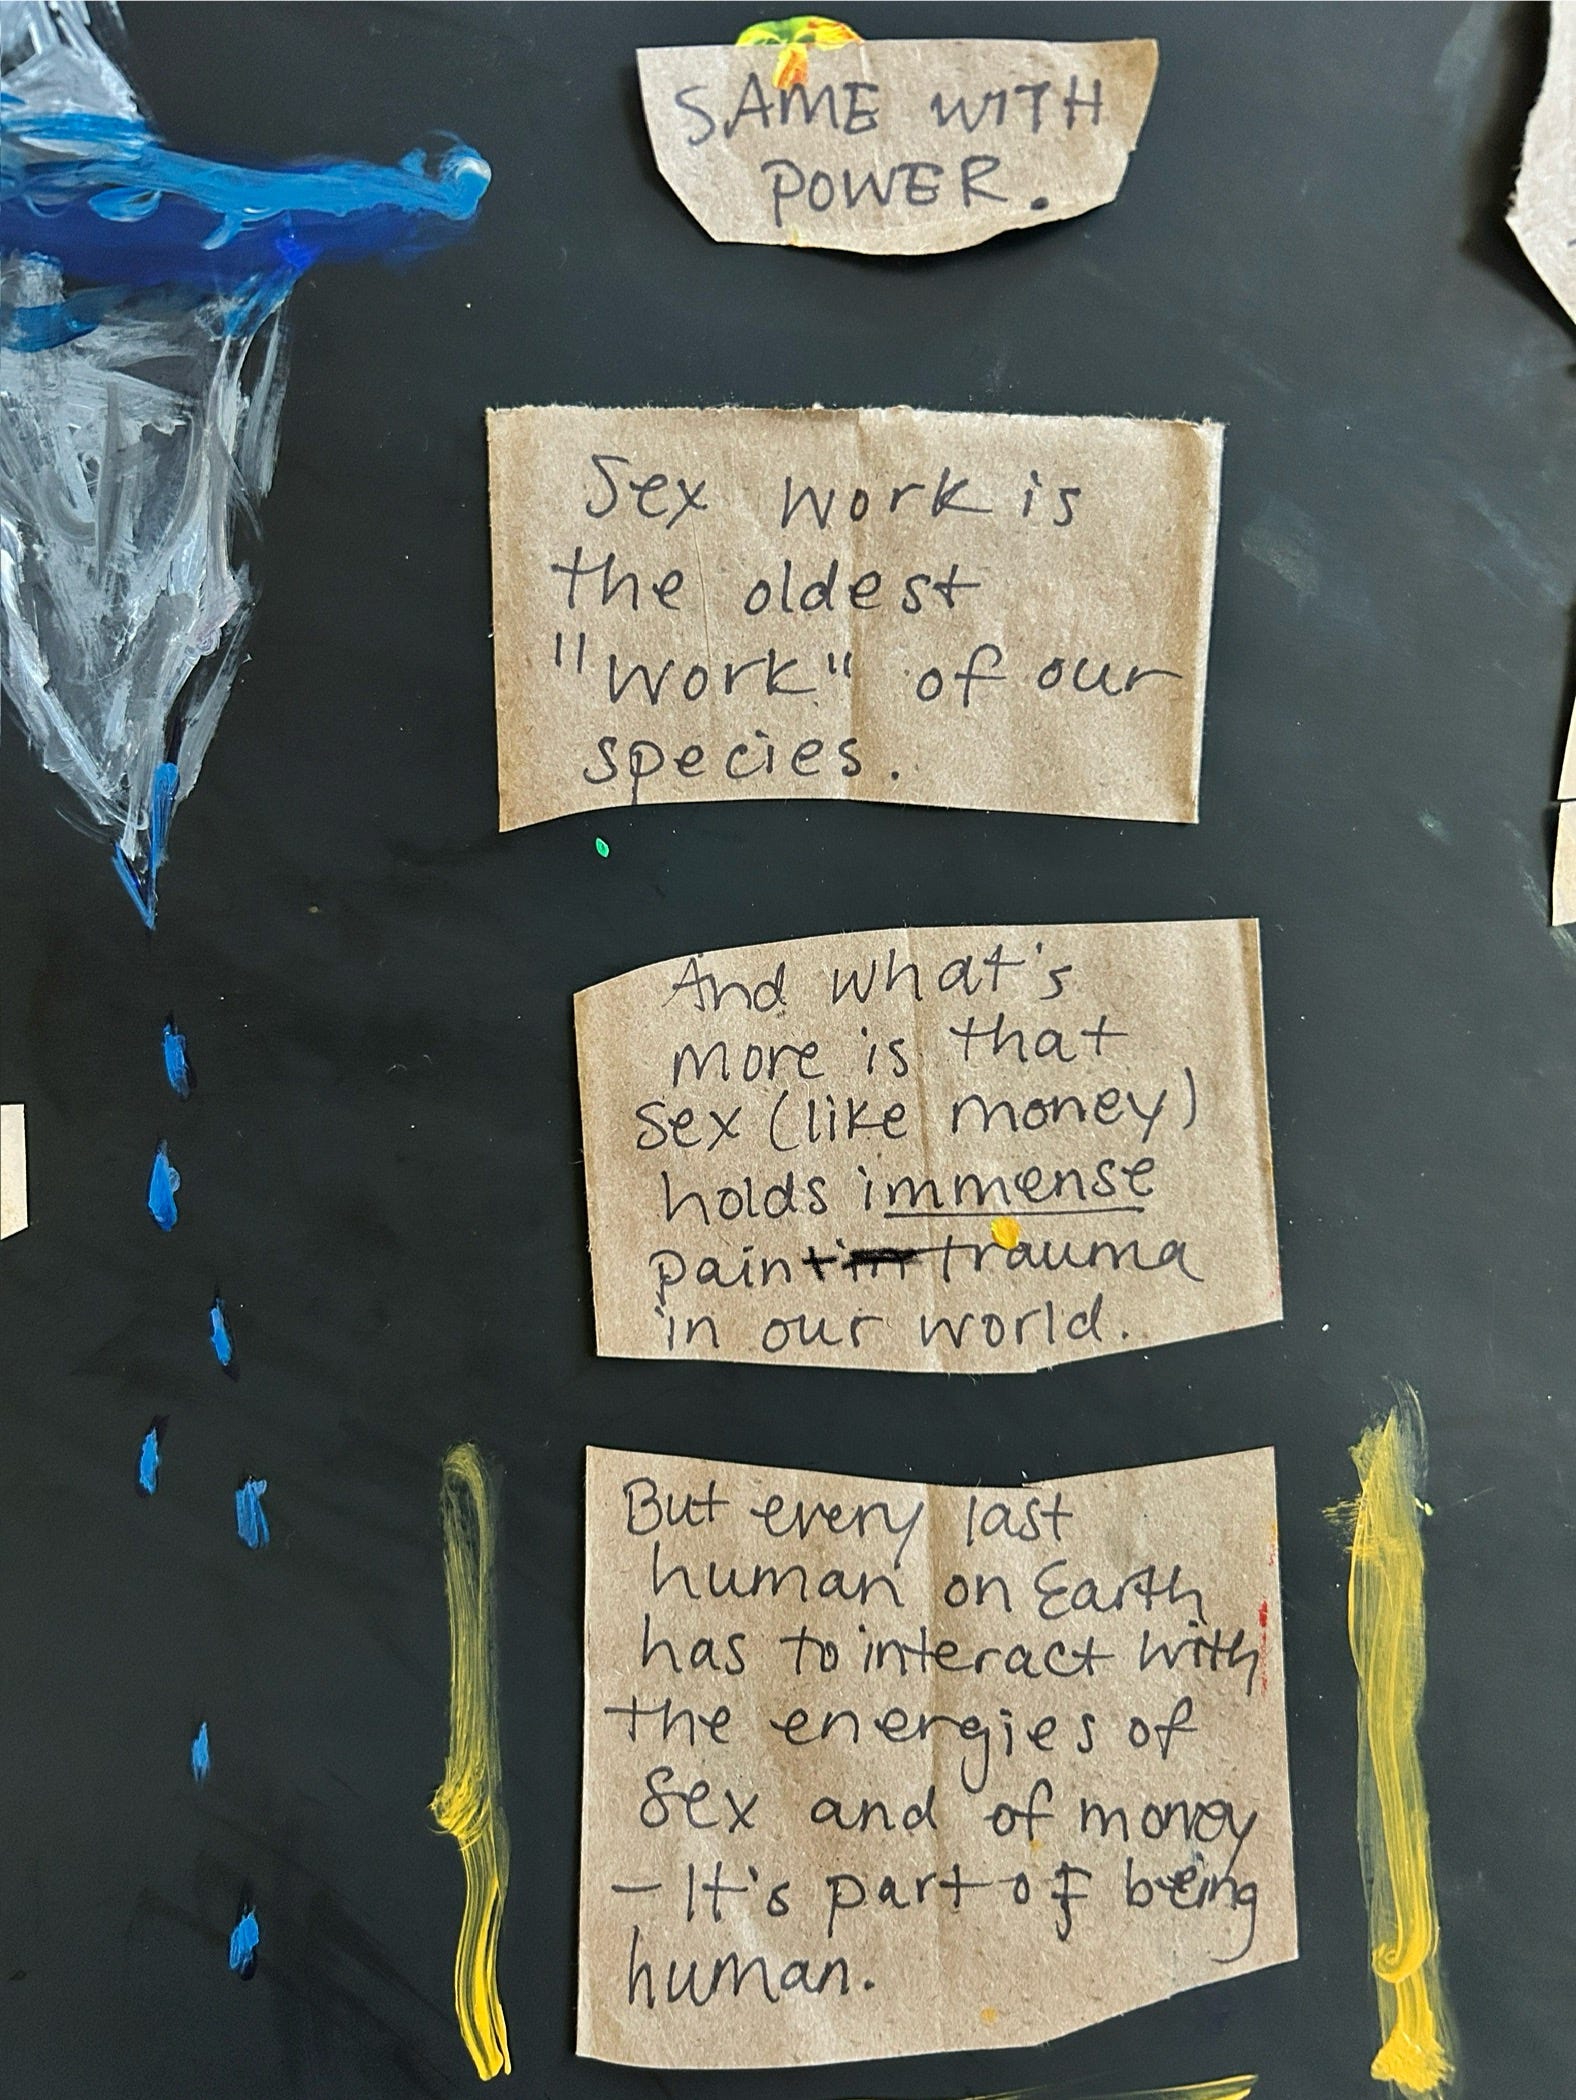 SAME WITH
POWER.
Sex work is
the oldest
"work" of our
species.
And what's
more is that
sex (like money)
holds immense
pain + trauma
in our world.
But every last
human on Earth
has to interact with
the energies of
Sex and of money
— It's part of being
human.